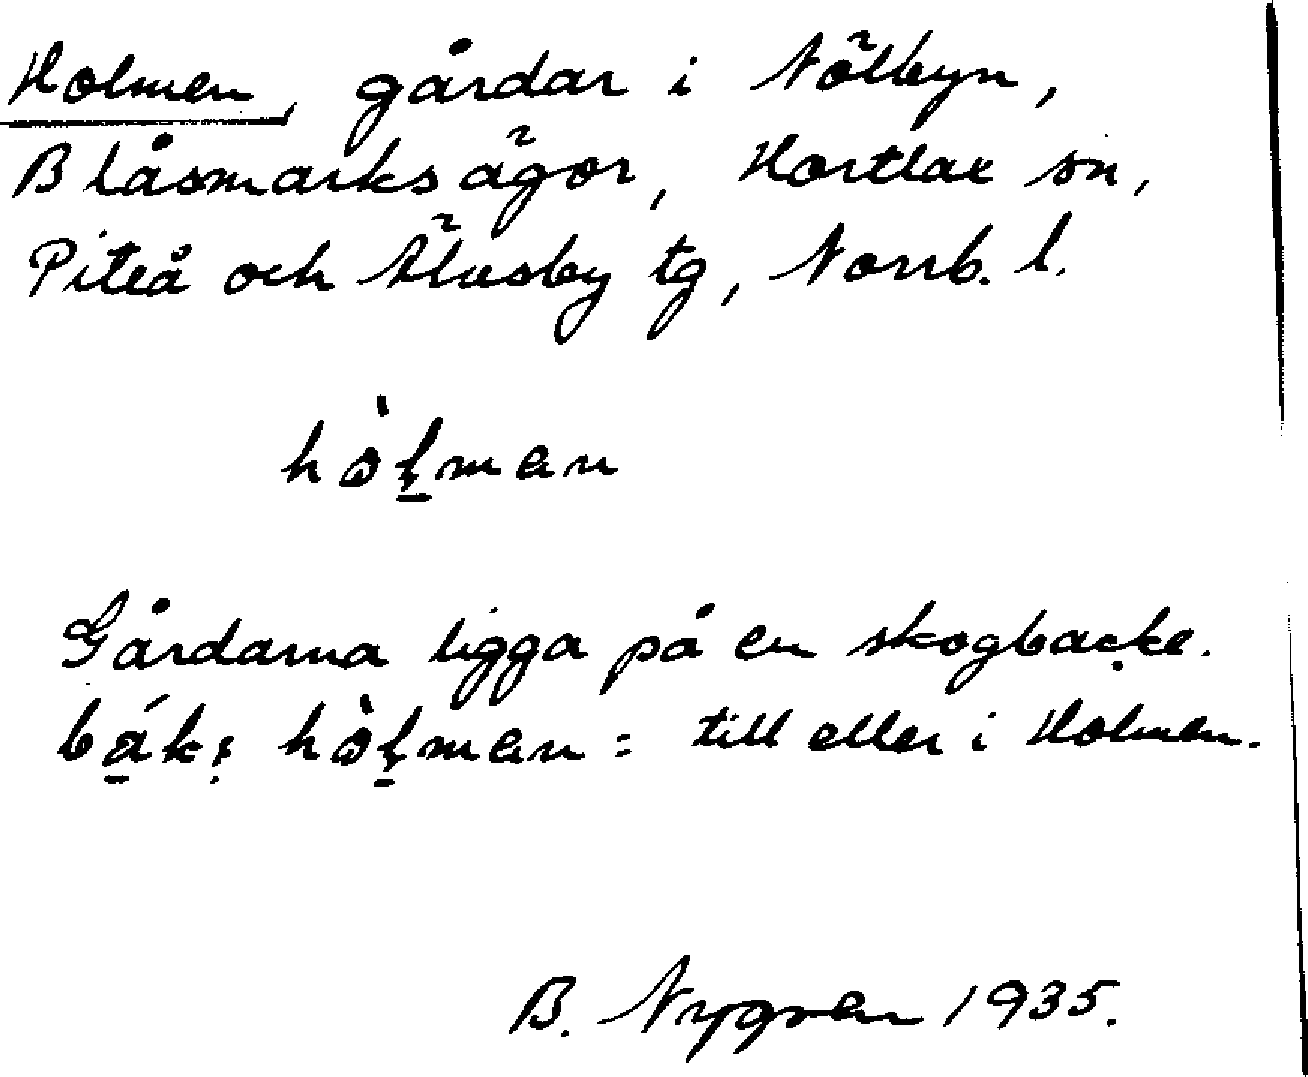 Holmen, gårdar i Nölbyn,
Blåsmarks ägor, Hortlax sn,
Piteå och Älvsby tg, Norrb. l.
hò̱ḻman
Gårdarna ligga på en skogbacke.
bá̱k: hòḻman = till eller i Holmen.
B. Nygren 1935.